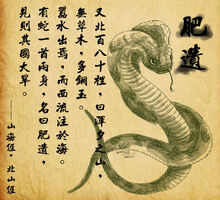 肥遺
又北百八十裡，曰渾夕之山，
無草木，多銅玉。
囂水出焉，而西流注於海。
有蛇一首兩身，名曰肥遺，
見則其國大旱。
——山海經，北山經